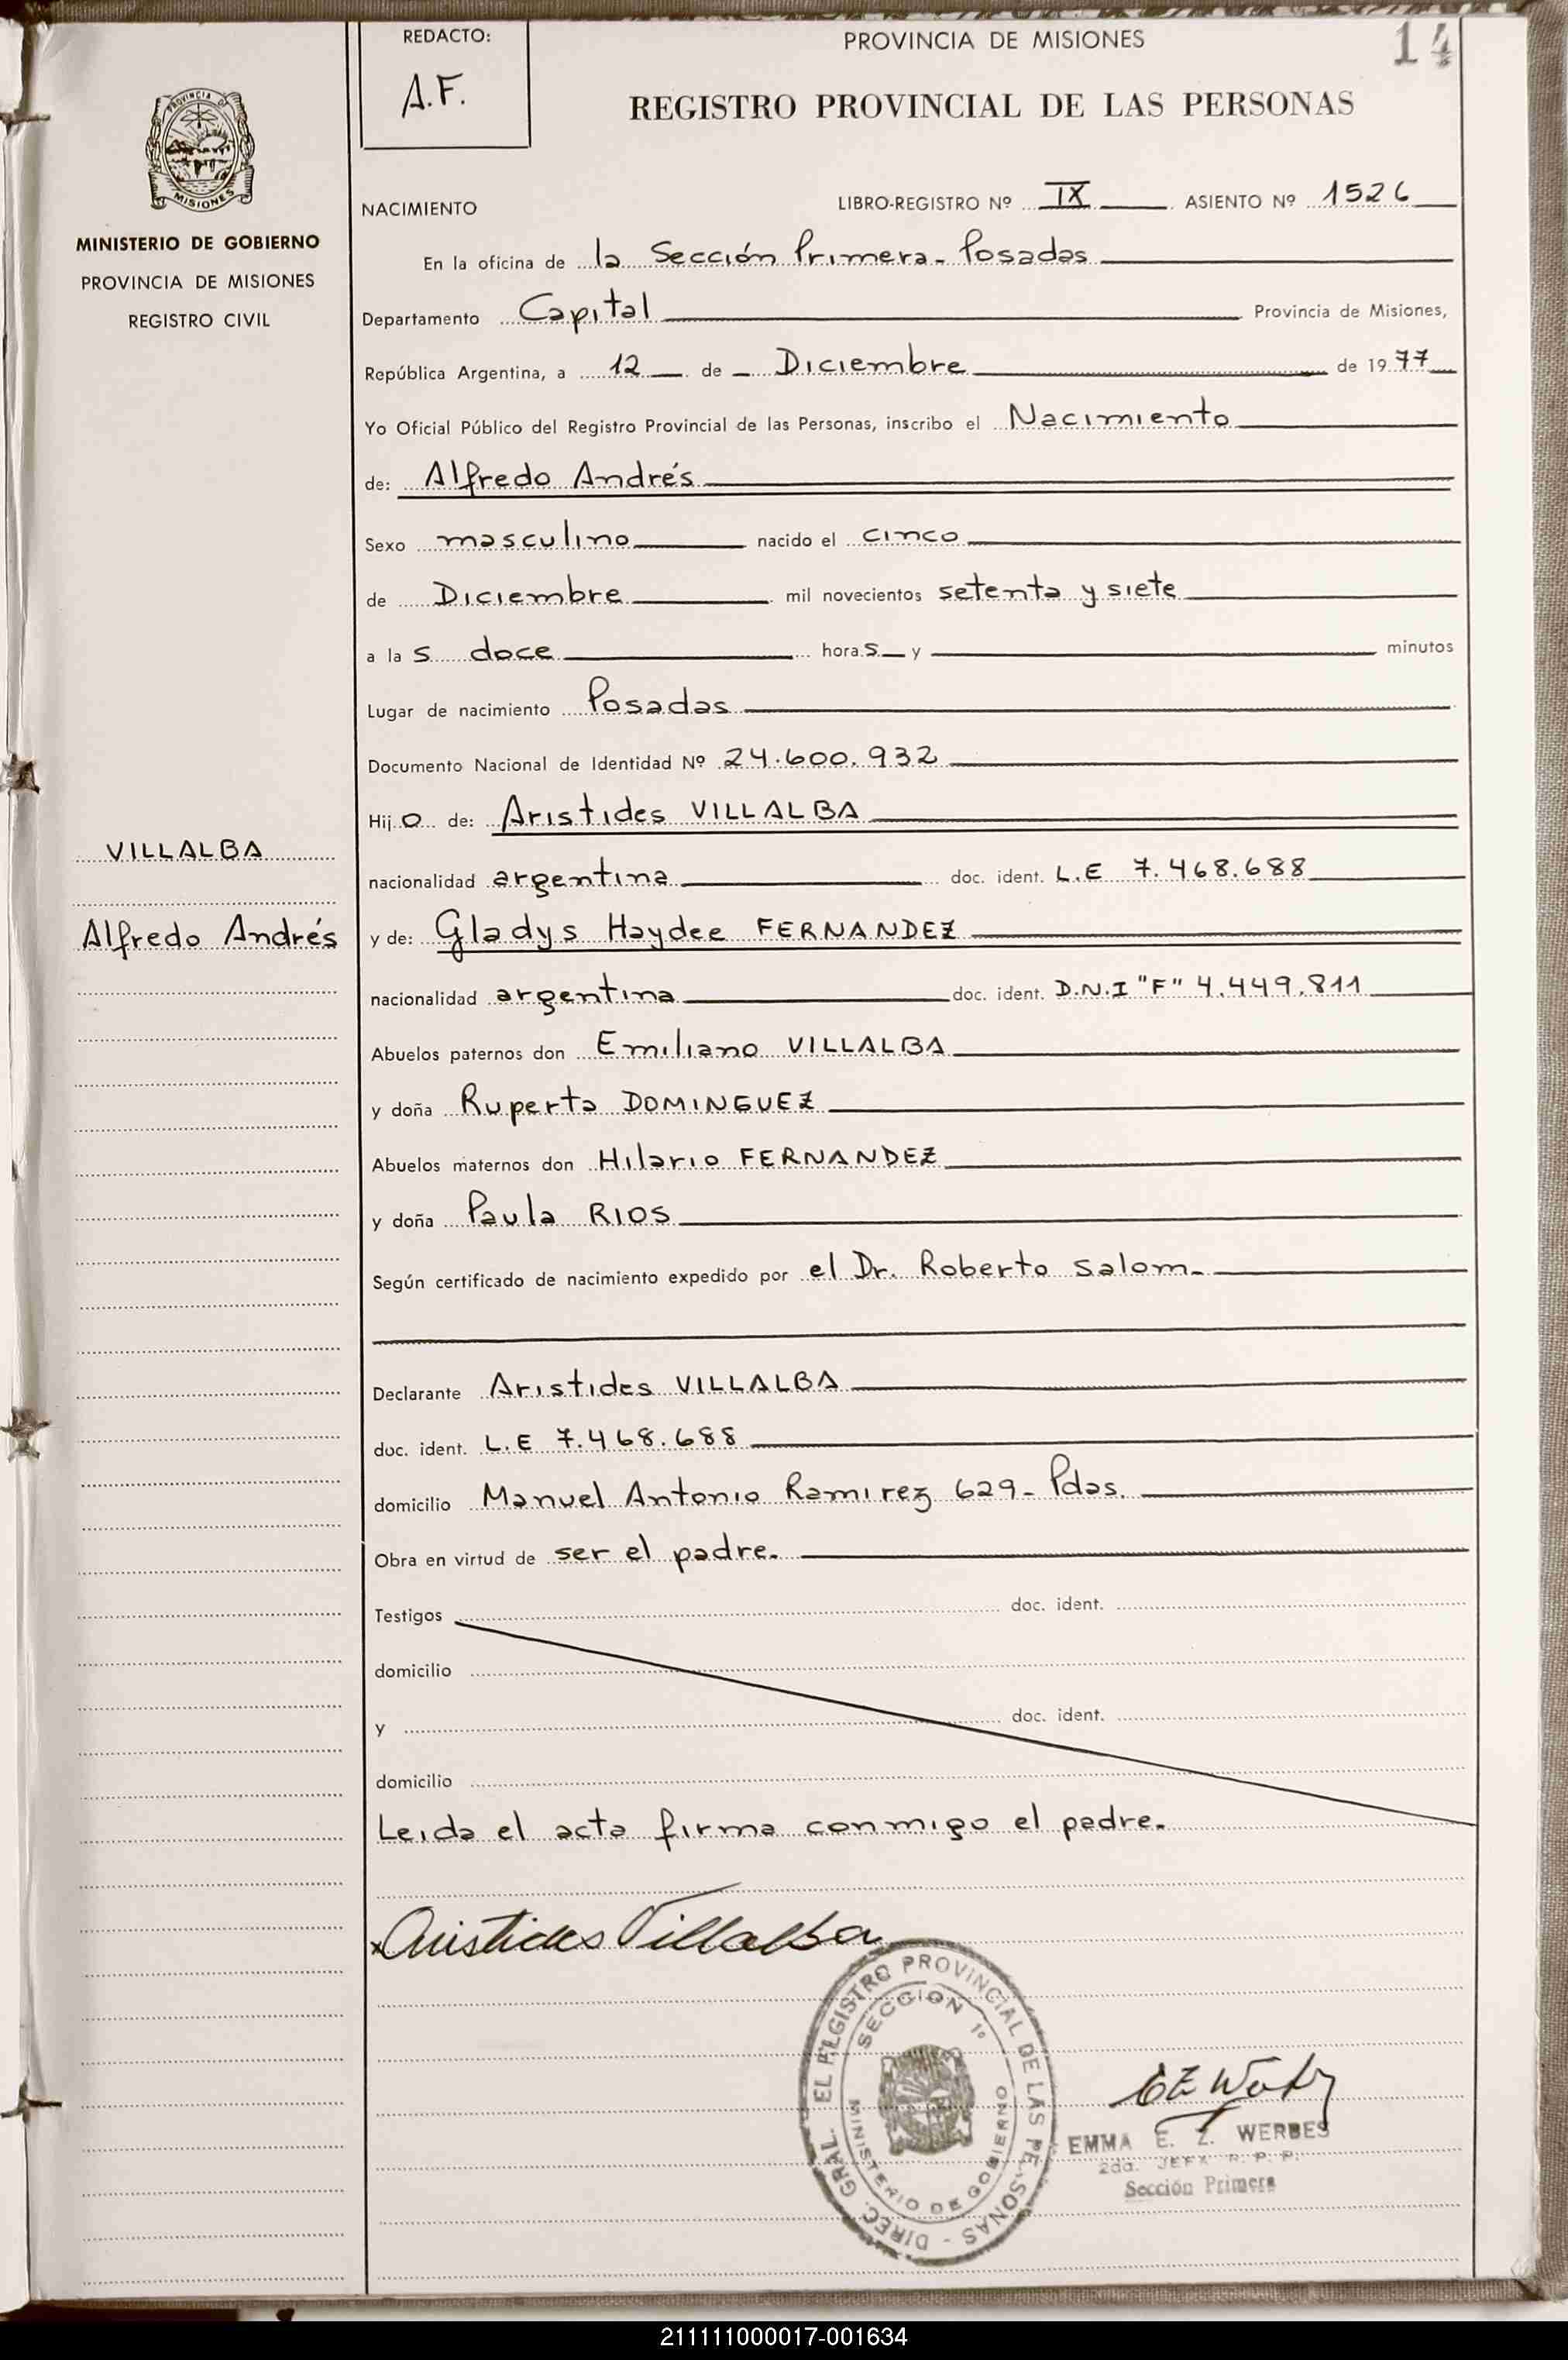 REDACTO:
A.F.
PROVINCIA DE MISIONES
14
REGISTRO PROVINCIAL DE LAS PERSONAS
PROVINCIA DE
MISIONES
MINISTERIO DE GOBIERNO
PROVINCIA DE MISIONES
REGISTRO CIVIL
NACIMIENTO LIBRO-REGISTRO Nº IX ASIENTO Nº 1526
En la oficina de la Sección Primera - Posadas
Departamento Capital Provincia de Misiones,
República Argentina, a 12 de Diciembre de 1977
Yo Oficial Público del Registro Provincial de las Personas, inscribo el Nacimiento
de: Alfredo Andrés
Sexo masculino nacido el cinco
de Diciembre mil novecientos setenta y siete
a las doce horas y minutos
Lugar de nacimiento Posadas
Documento Nacional de Identidad Nº 24.600.932
Hijo de: Aristides VILLALBA
VILLALBA
nacionalidad argentina doc. ident. L.E 7.468.688
Alfredo Andrés
y de: Gladys Haydee FERNANDEZ
nacionalidad argentina doc. ident. D.N.I "F" 4.449.811
Abuelos paternos don Emiliano VILLALBA
y doña Ruperta DOMINGUEZ
Abuelos maternos don Hilario FERNANDEZ
y doña Paula RIOS
Según certificado de nacimiento expedido por el Dr. Roberto Salom.
Declarante Aristides VILLALBA
doc. ident. L.E 7.468.688
domicilio Manuel Antonio Ramirez 629 - Pdas.
Obra en virtud de ser el padre.
Testigos doc. ident.
domicilio
y doc. ident.
domicilio
Leida el acta firma conmigo el padre.
Aristides Villalba
DIREC. GRAL. EL REGISTRO PROVINCIAL DE LAS PERSONAS -
SECCION 1º
MINISTERIO DE GOBIERNO
EMMA E. Z. WERBES
2da. JEFA R. P. P.
Sección Primera
211111000017-001634